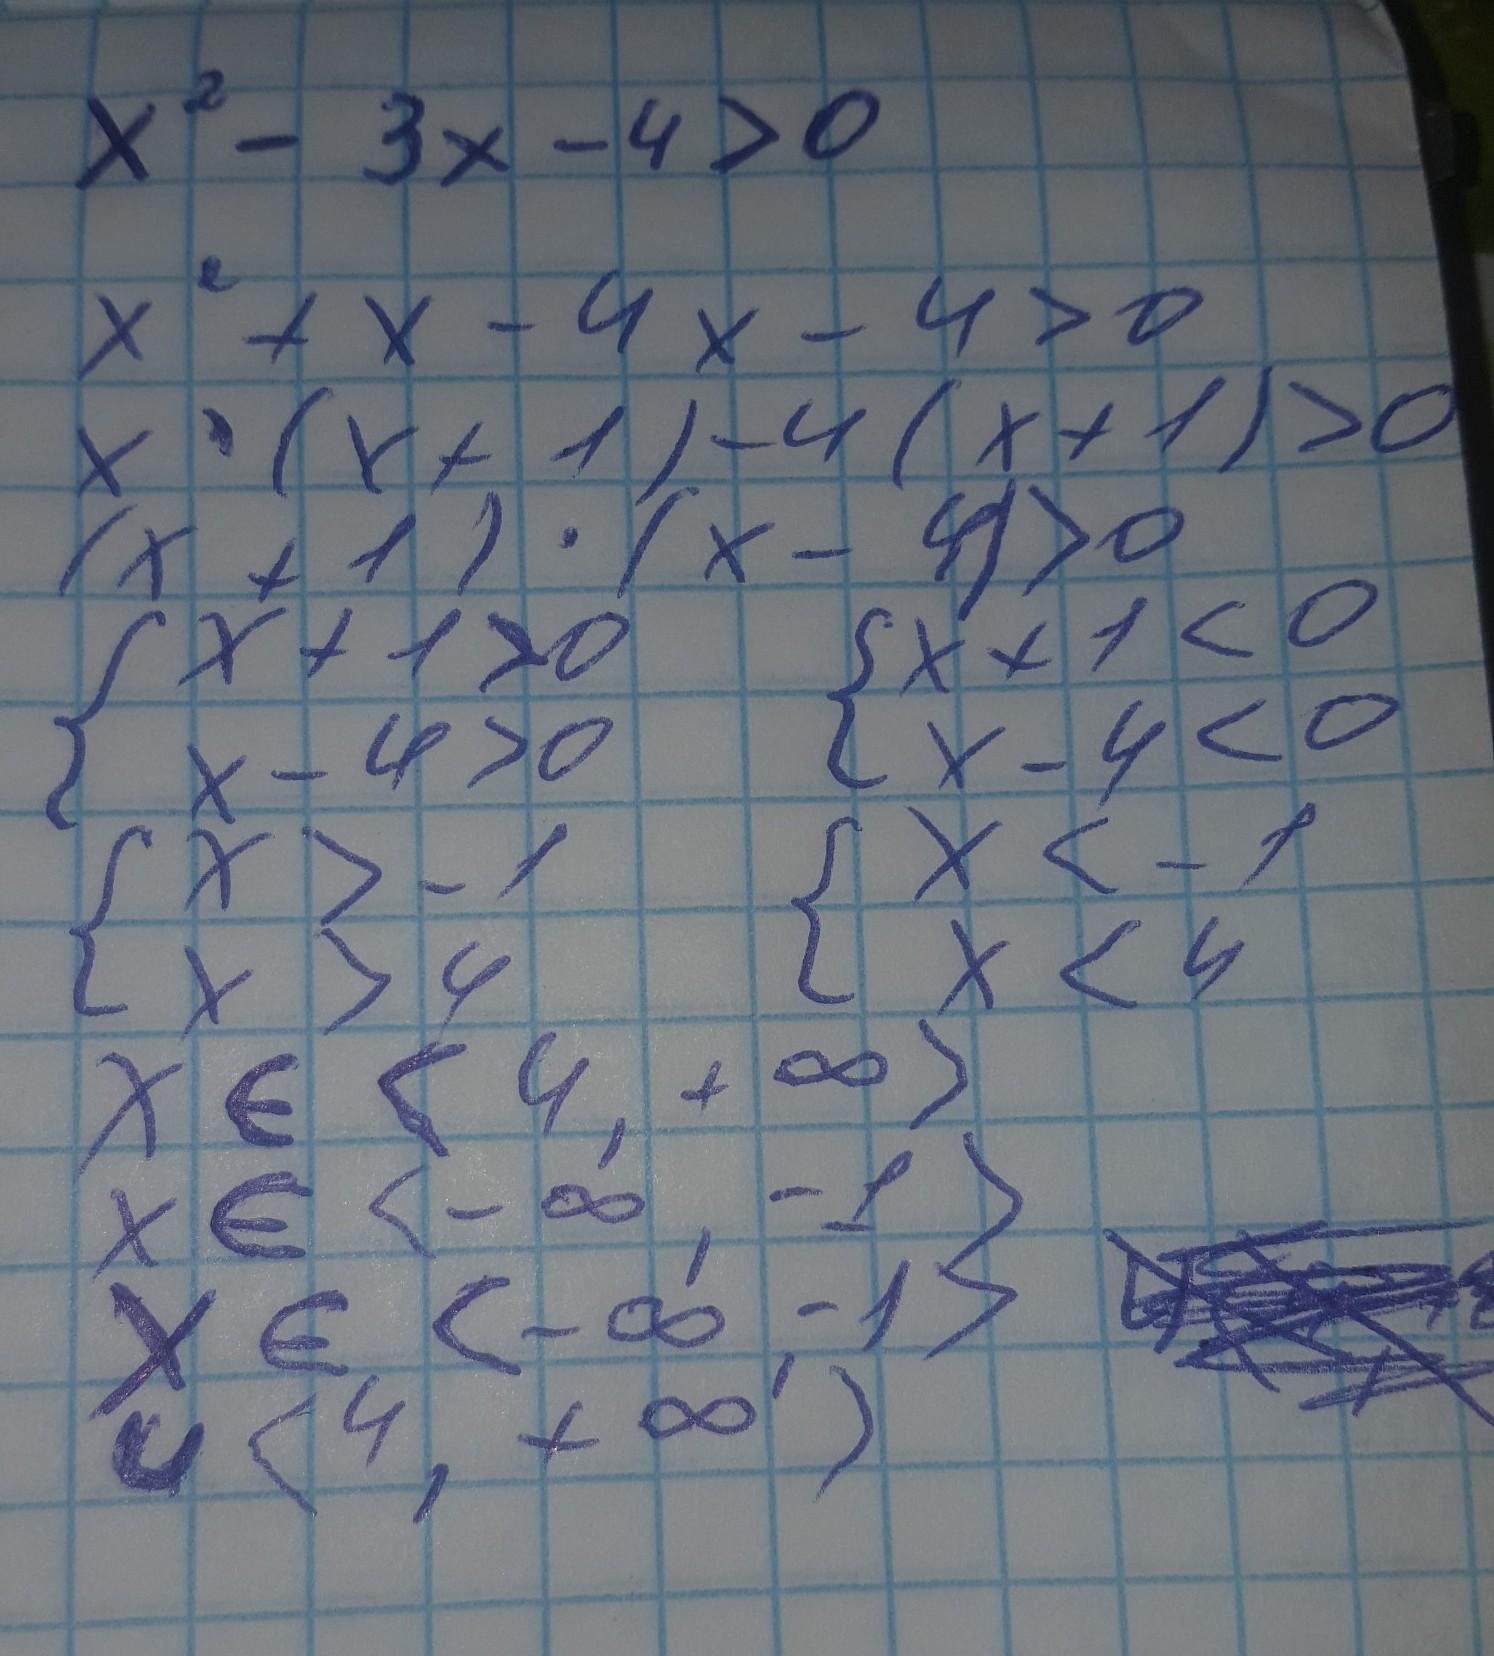 x² - 3x - 4 > 0
x² + x - 4x - 4 > 0
x · (x + 1) - 4 (x + 1) > 0
(x + 1) · (x - 4) > 0
{ x + 1 > 0 { x + 1 < 0
x - 4 > 0 x - 4 < 0
{ x > -1 { x < -1
x > 4 x < 4
x ∈ < 4, + ∞ >
x ∈ < - ∞, -1 >
x ∈ < - ∞, -1 >
∪ < 4, + ∞ )